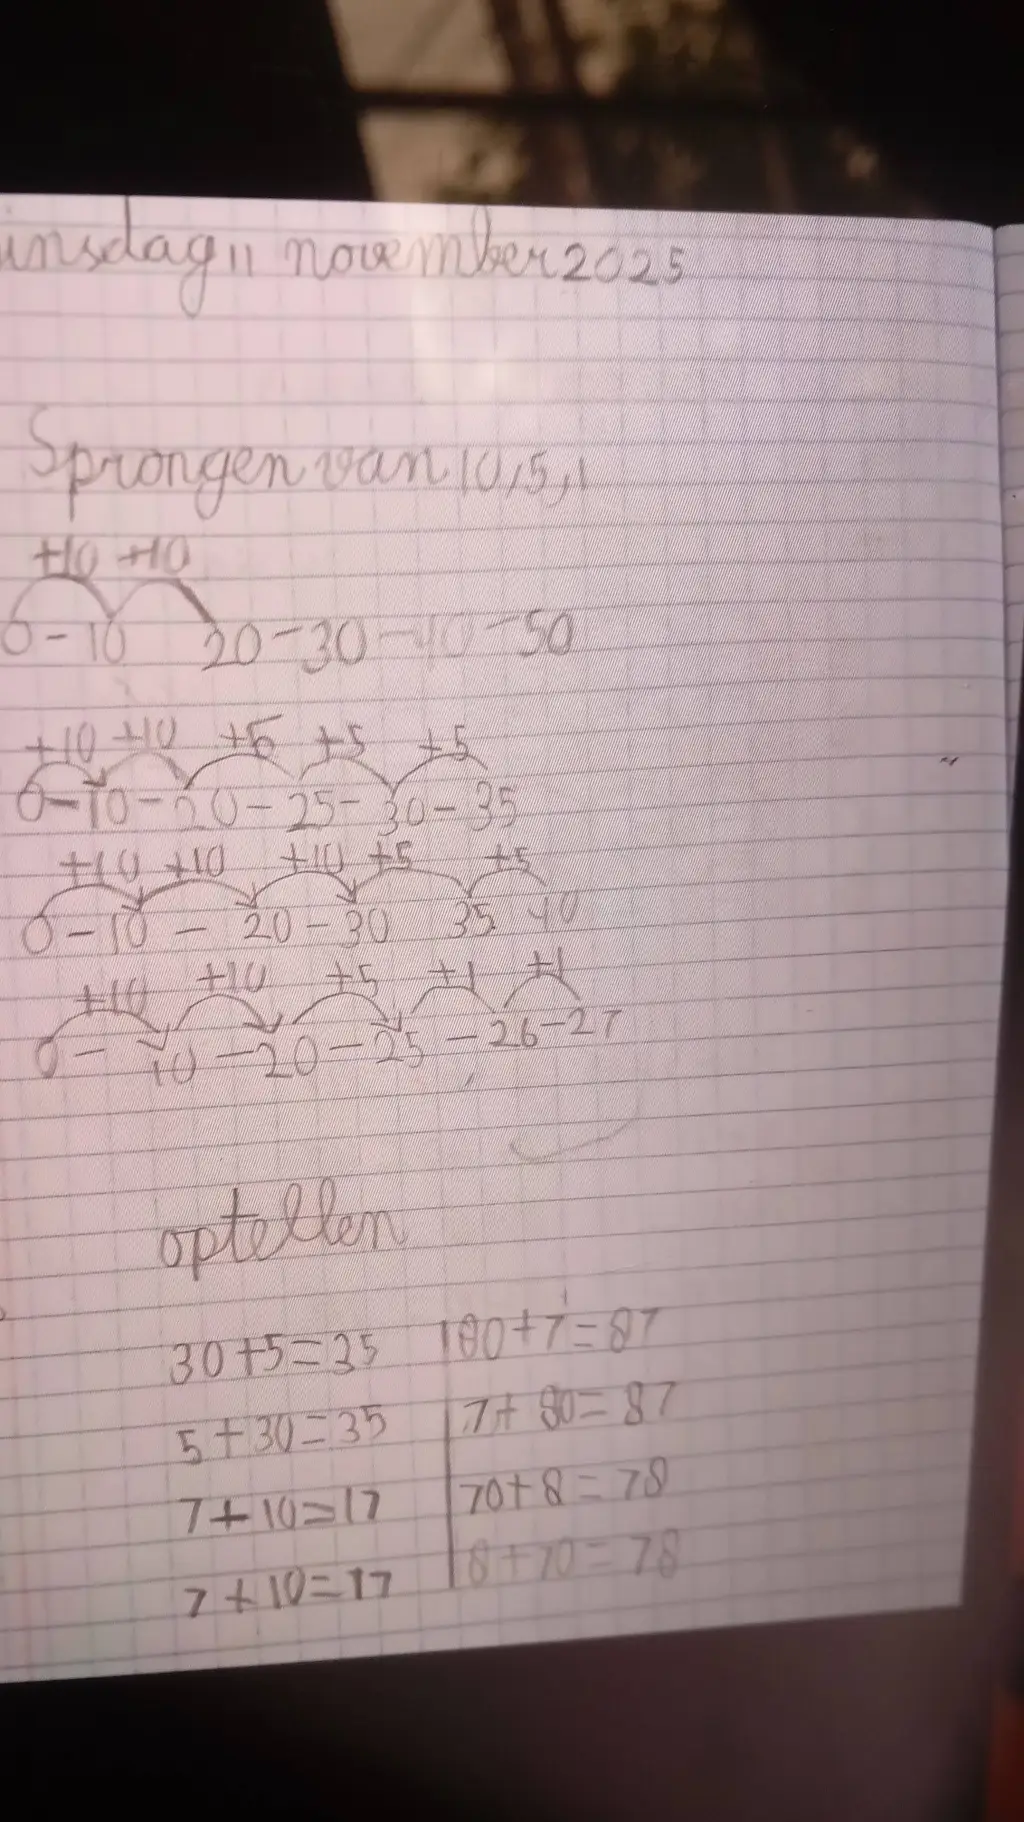 insdag 11 november 2025
Sprongen van 10,5,1
+10 +10
0-10 20-30-40-50
+10 +10 +5 +5 +5
0-10-20-25-30-35
+10 +10 +10 +5 +5
0-10-20-30 35 40
+10 +10 +5 +1 +1
0-10-20-25-26-27
optellen
30+5=35 80+7=87
5+30=35 7+80=87
7+10=17 70+8=78
7+10=17 8+70=78